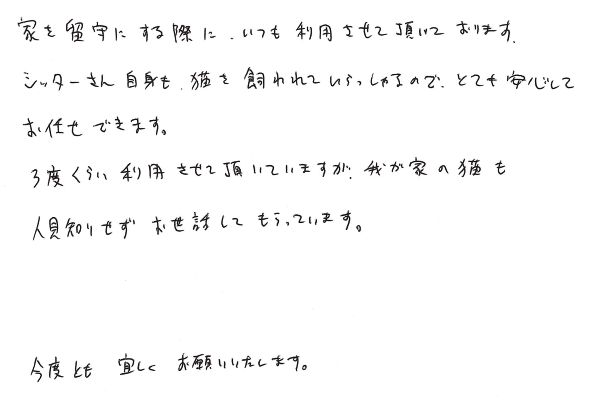 家を留守にする際に、いつも利用させて頂いております。
シッターさん自身も、猫を飼われていらっしゃるので、とても安心して
お任せできます。
3度くらい利用させて頂いていますが、我が家の猫も
人見知りせずお世話してもらっています。
今度とも宜しくお願いいたします。